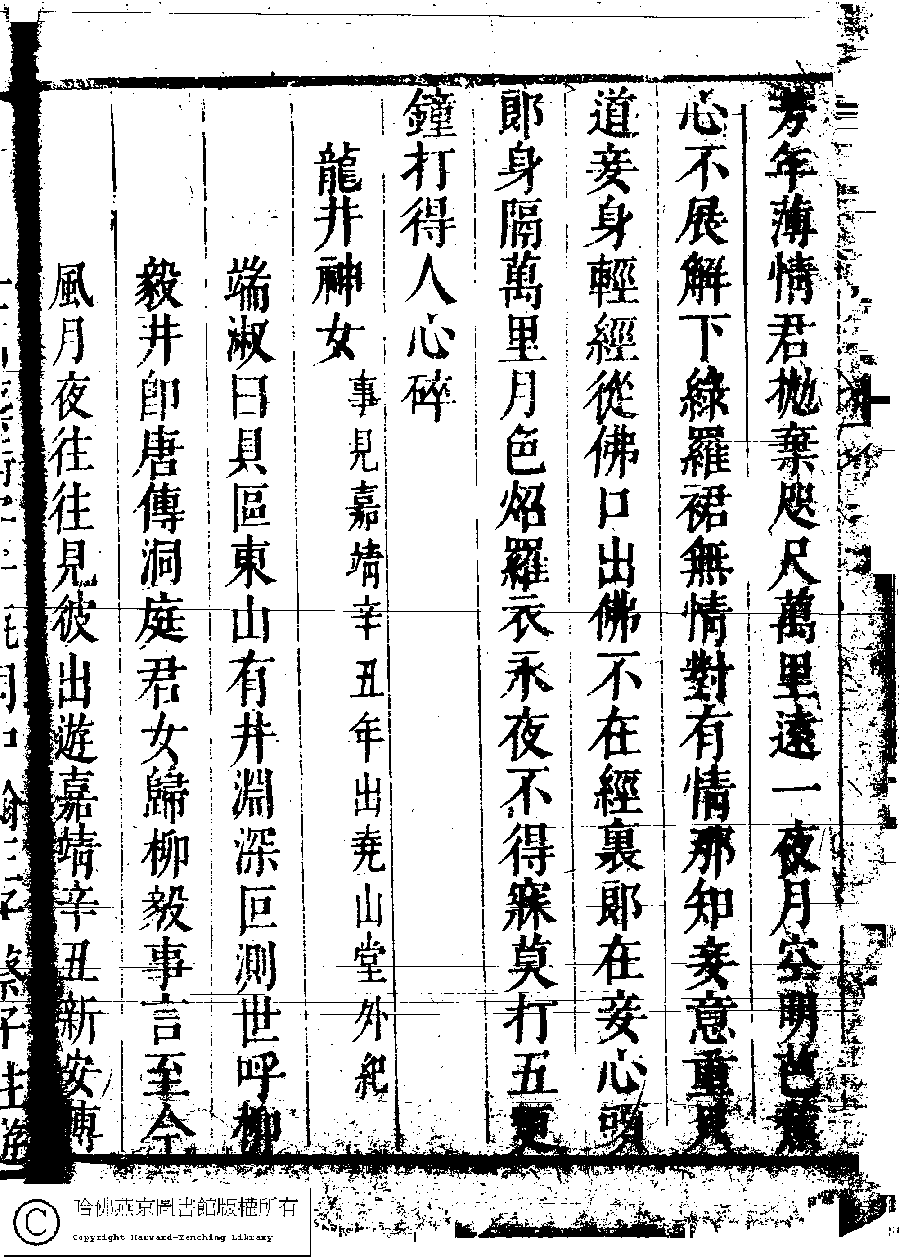 芳年薄情君拋棄咫尺萬里遠一夜月空明芭蕉
心不展解下綠羅裙無情對有情那知妾意重只
道妾身輕經從佛口出佛不在經裏郎在妾心頭
郎身隔萬里月色炤羅衣永夜不得寐莫打五更
鐘打得人心碎
龍井神女 事見嘉靖辛丑年出堯山堂外紀
端淑曰具區東山有井淵深叵測世呼柳
毅井卽唐傳洞庭君女歸柳毅事言至今
風月夜往往見彼出遊嘉靖辛丑新安
哈佛燕京圖書館版權所有
Copyright Harvard-Yenching Library